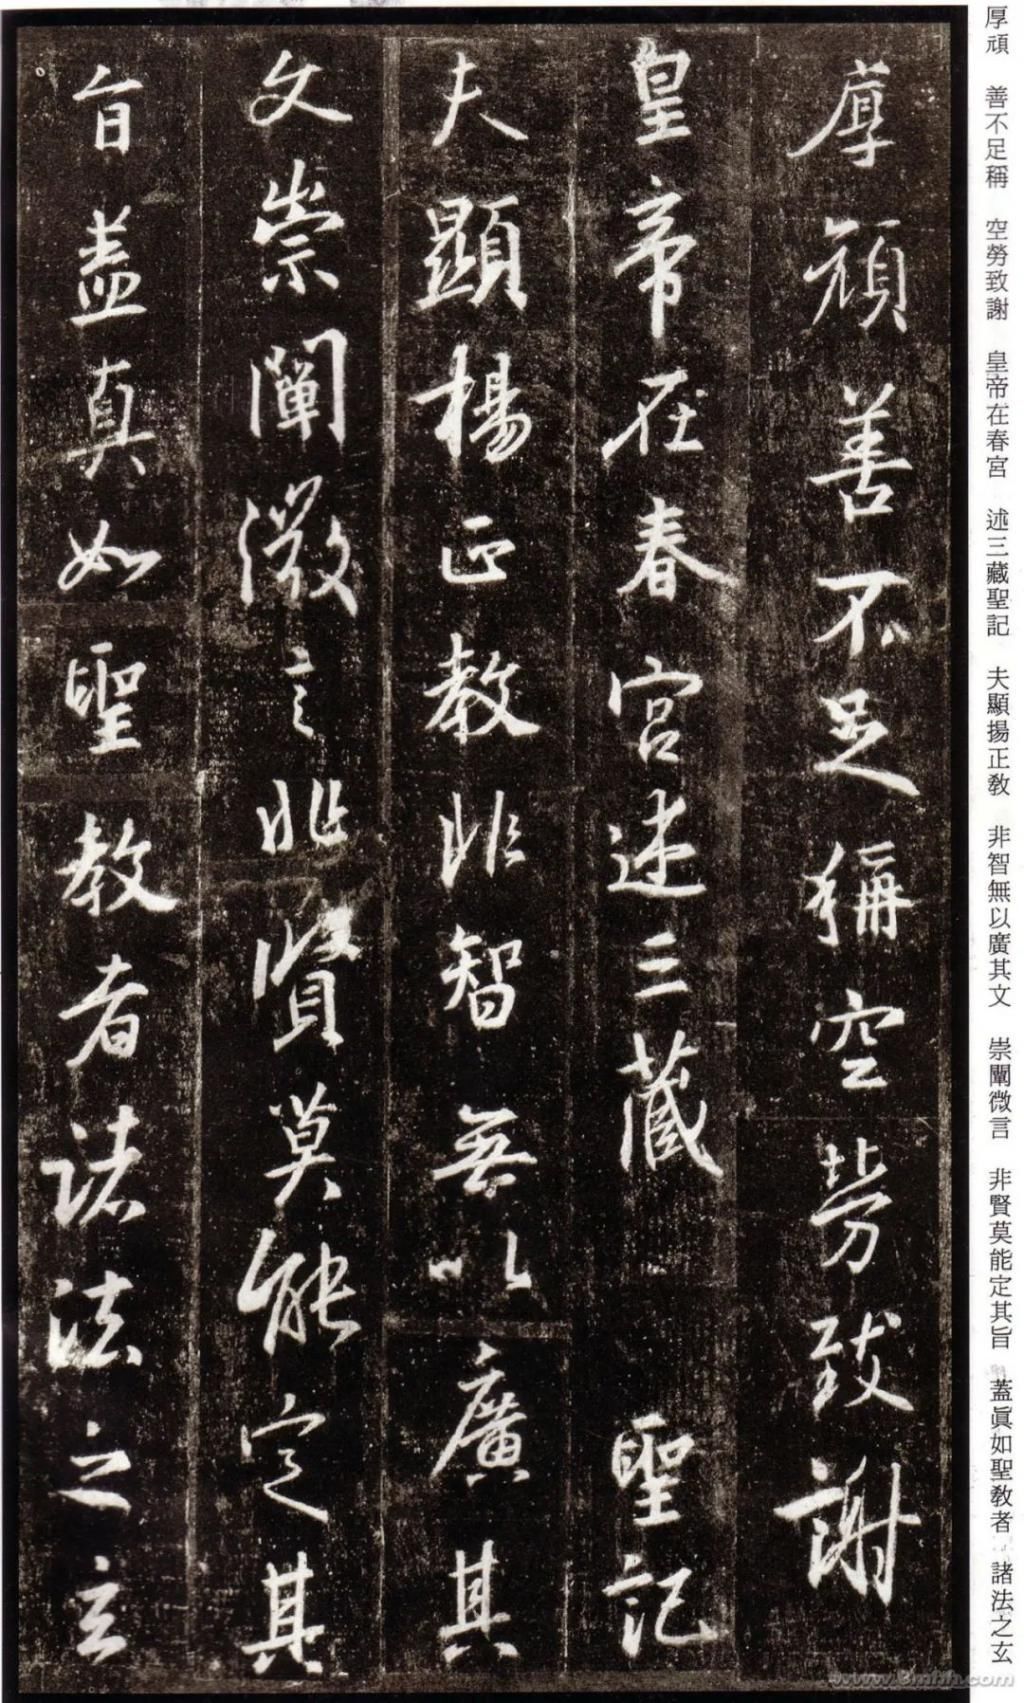 厚頑　善不足稱　空勞致謝　皇帝在春宮　述三藏聖記　夫顯揚正教　非智無以廣其文　崇闡微言　非賢莫能定其旨　蓋眞如聖教者　諸法之玄
厚頑善不足稱空勞致謝
皇帝在春宮述三藏　聖記
夫顯揚正教非智無以廣其
文崇闡微言非賢莫能定其
旨蓋真如聖教者諸法之玄